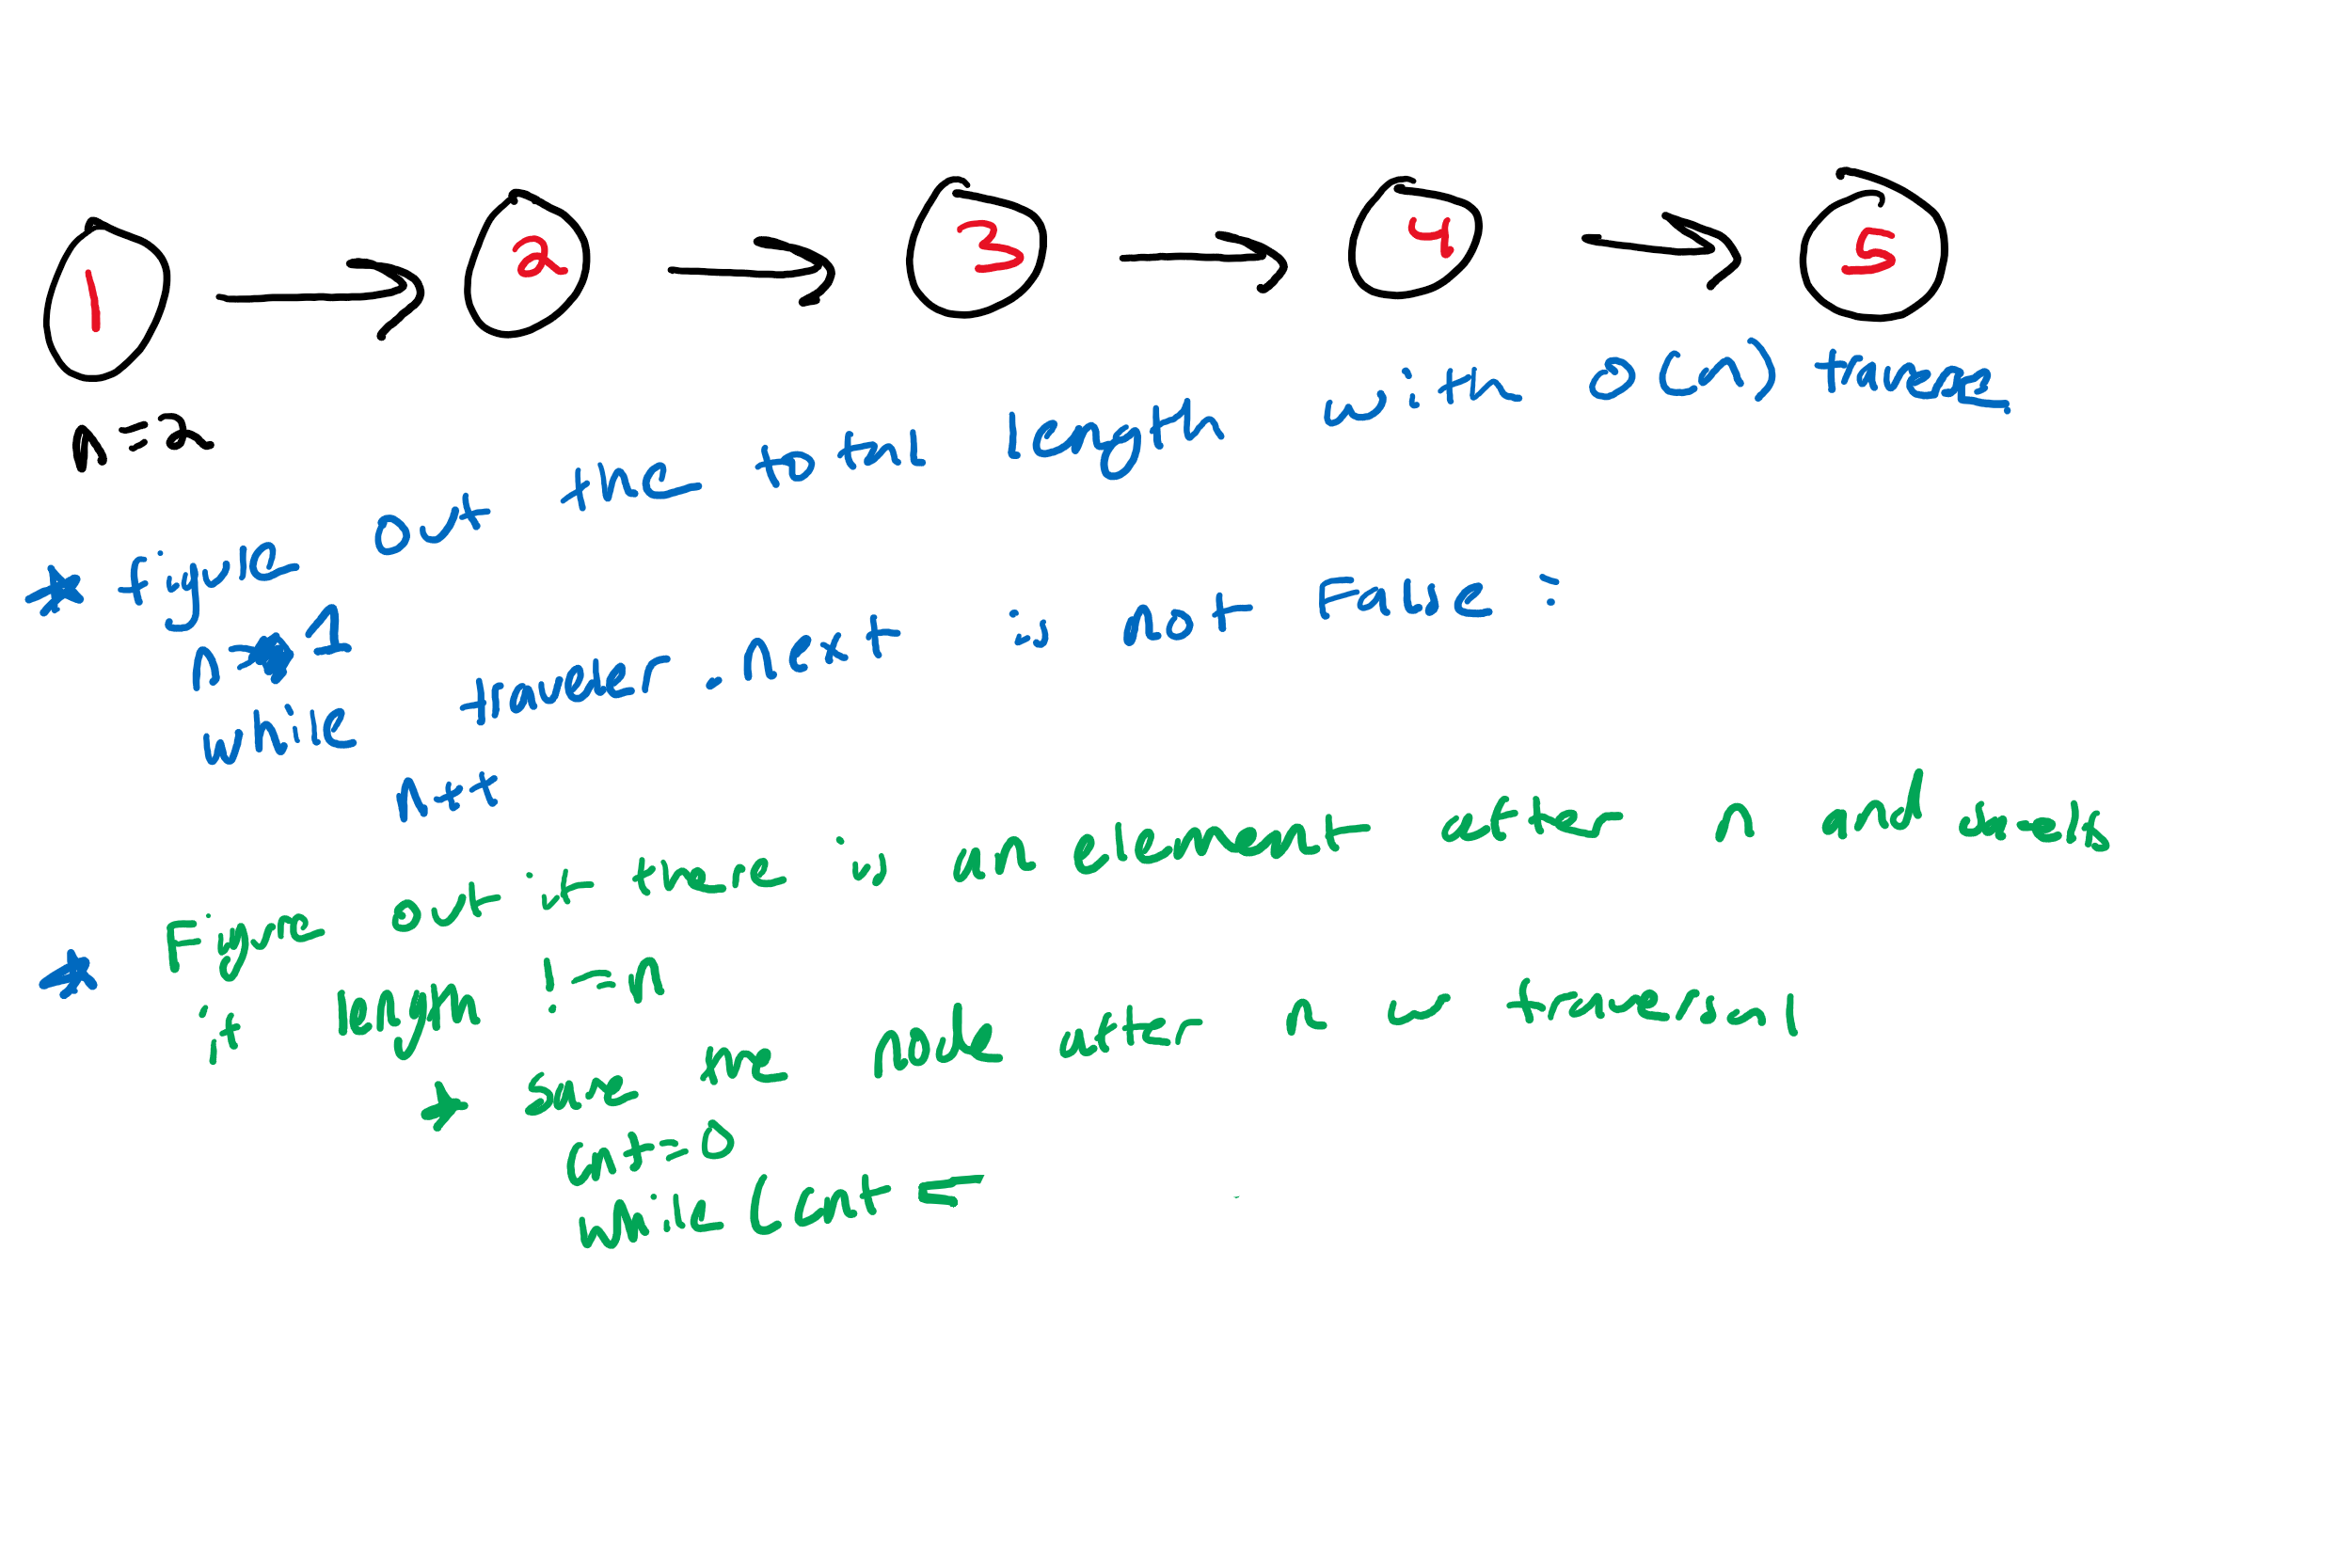 1 → 2 → 3 → 4 → 5
n=2
* figure out the total length with O(n) traverse
n=1
while traveler.next is not False:
n++
* Figure out if there is an element after n and
if length != n
* save the node after n w traversal
cnt=0
while (cnt =